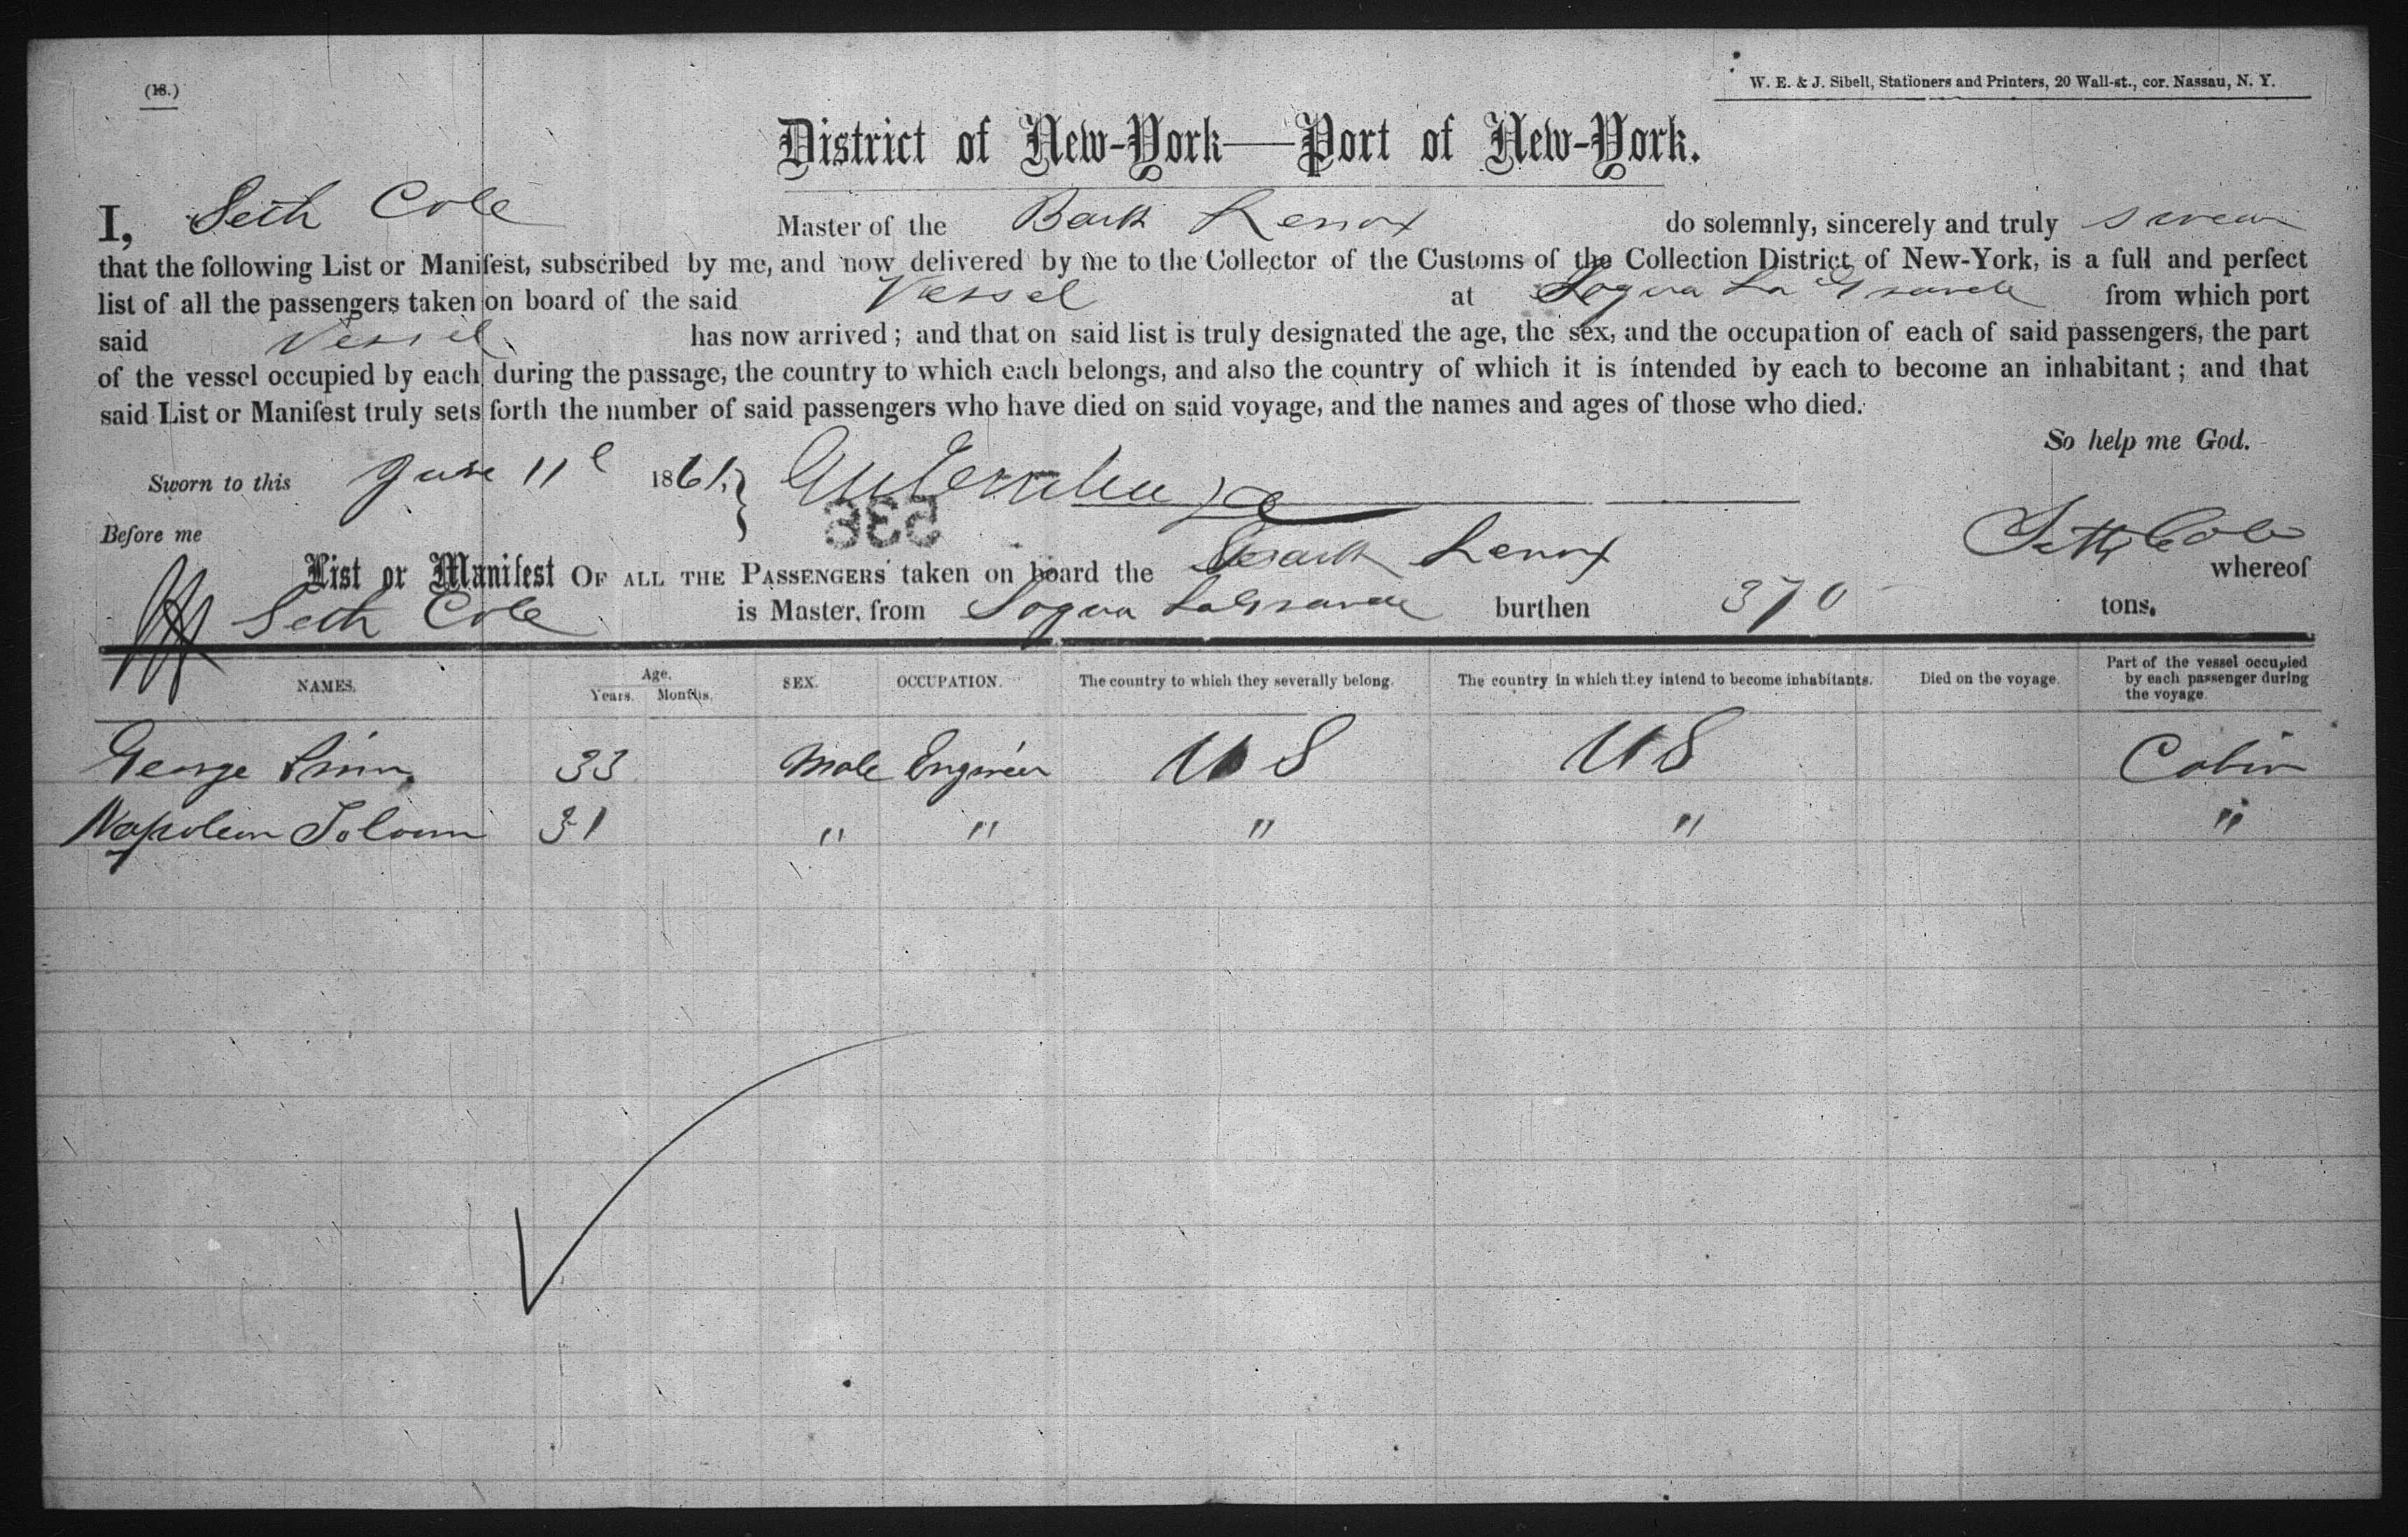 (18.)
W. E. & J. Sibell, Stationers and Printers, 20 Wall-st., cor. Nassau, N. Y.
District of New-York—Port of New-York.
I, Seth Cole Master of the Bark Lenox do solemnly, sincerely and truly swear
that the following List or Manifest, subscribed by me, and now delivered by me to the Collector of the Customs of the Collection District of New-York, is a full and perfect
list of all the passengers taken on board of the said Vessel at Sagua La Grande from which port
said Vessel has now arrived; and that on said list is truly designated the age, the sex, and the occupation of each of said passengers, the part
of the vessel occupied by each during the passage, the country to which each belongs, and also the country of which it is intended by each to become an inhabitant; and that
said List or Manifest truly sets forth the number of said passengers who have died on said voyage, and the names and ages of those who died.
So help me God.
Sworn to this June 11 1861.
Before me
535
Seth Cole
List or Manifest OF ALL THE PASSENGERS taken on board the Bark Lenox whereof
Seth Cole is Master, from Sagua LaGrande burthen 370 tons.
NAMES. Age. Years. Months. SEX. OCCUPATION. The country to which they severally belong. The country in which they intend to become inhabitants. Died on the voyage. Part of the vessel occupied by each passenger during the voyage.
George 33 Male Engineer U S U S Cabin
Napoleon 31 " " " " "